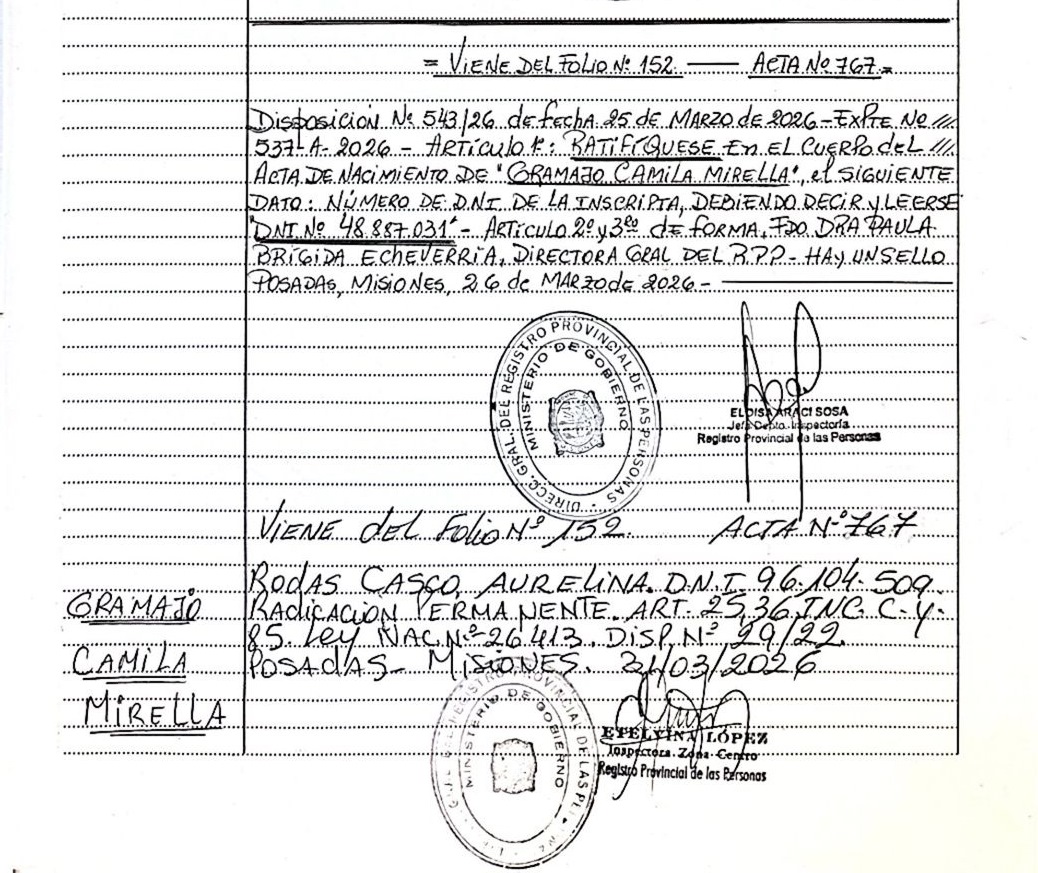 = VIENE DEL FOLIO Nº 152. — ACTA Nº 767.=
Disposición Nº 543/26 de fecha 25 DE MARZO de 2026 - EXPTE Nº ///
537-A-2026 - ARTÍCULO 1º: RATIFÍQUESE EN EL CUERPO del ///
ACTA DE NACIMIENTO DE "GRAMAJO CAMILA MIRELLA", el SIGUIENTE
DATO: NÚMERO DE D.N.I. DE LA INSCRIPTA, DEBIENDO DECIR Y LEERSE
"DNI Nº 48.887.031" - ARTÍCULO 2º y 3º de FORMA. FDO. DRA PAULA
BRÍGIDA ECHEVERRÍA, DIRECTORA GRAL DEL RPP - HAY UN SELLO
POSADAS, MISIONES, 26 de MARZO de 2026 -
DIRECC. GRAL. DEL REGISTRO PROVINCIAL DE LAS PERSONAS
MINISTERIO DE GOBIERNO
ELOISA ARACI SOSA
Jefa Depto. Inspectoría
Registro Provincial de las Personas
VIENE del Folio Nº 152. ACTA Nº 767
RODAS CASCO, AURELINA. D.N.I 96.104.509.
GRAMAJO
RADICACION PERMANENTE. ART. 25,36, INC. C-Y-
85. Ley NAC. Nº 26.413. DISP. Nº 29/22.
CAMILA
POSADAS - MISIONES. 31/03/2026
MIRELLA
MINISTERIO DE GOBIERNO
ETELVINA LÓPEZ
Inspectora Zona Centro
Registro Provincial de las Personas